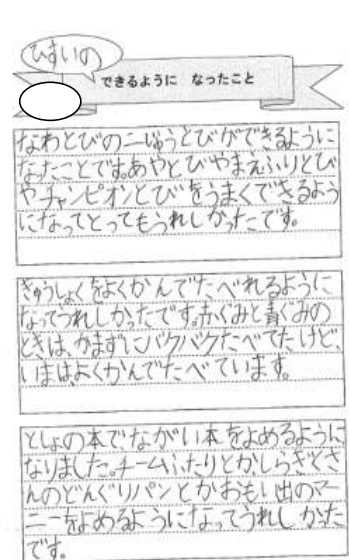 ひすいの
できるように なったこと
なわとびの二じゅうとびができるように
なたことです。あやとびやまえふりとび
やチャンピオンとびをうまくできるよう
になってとってもうれしかったです。
きゅうしょくをよくかんでたべれるように
なってうれしかったです。赤ぐみと青ぐみの
ときは、かまずにバクバクたべてたけど、
いまはよくかんでたべています。
としょの本でながい本をよめるように
なりました。チームふたりとかしらぎくさ
んのどんぐりパンとかおもい出のマー
ニーをよめるようになってうれしかった
です。